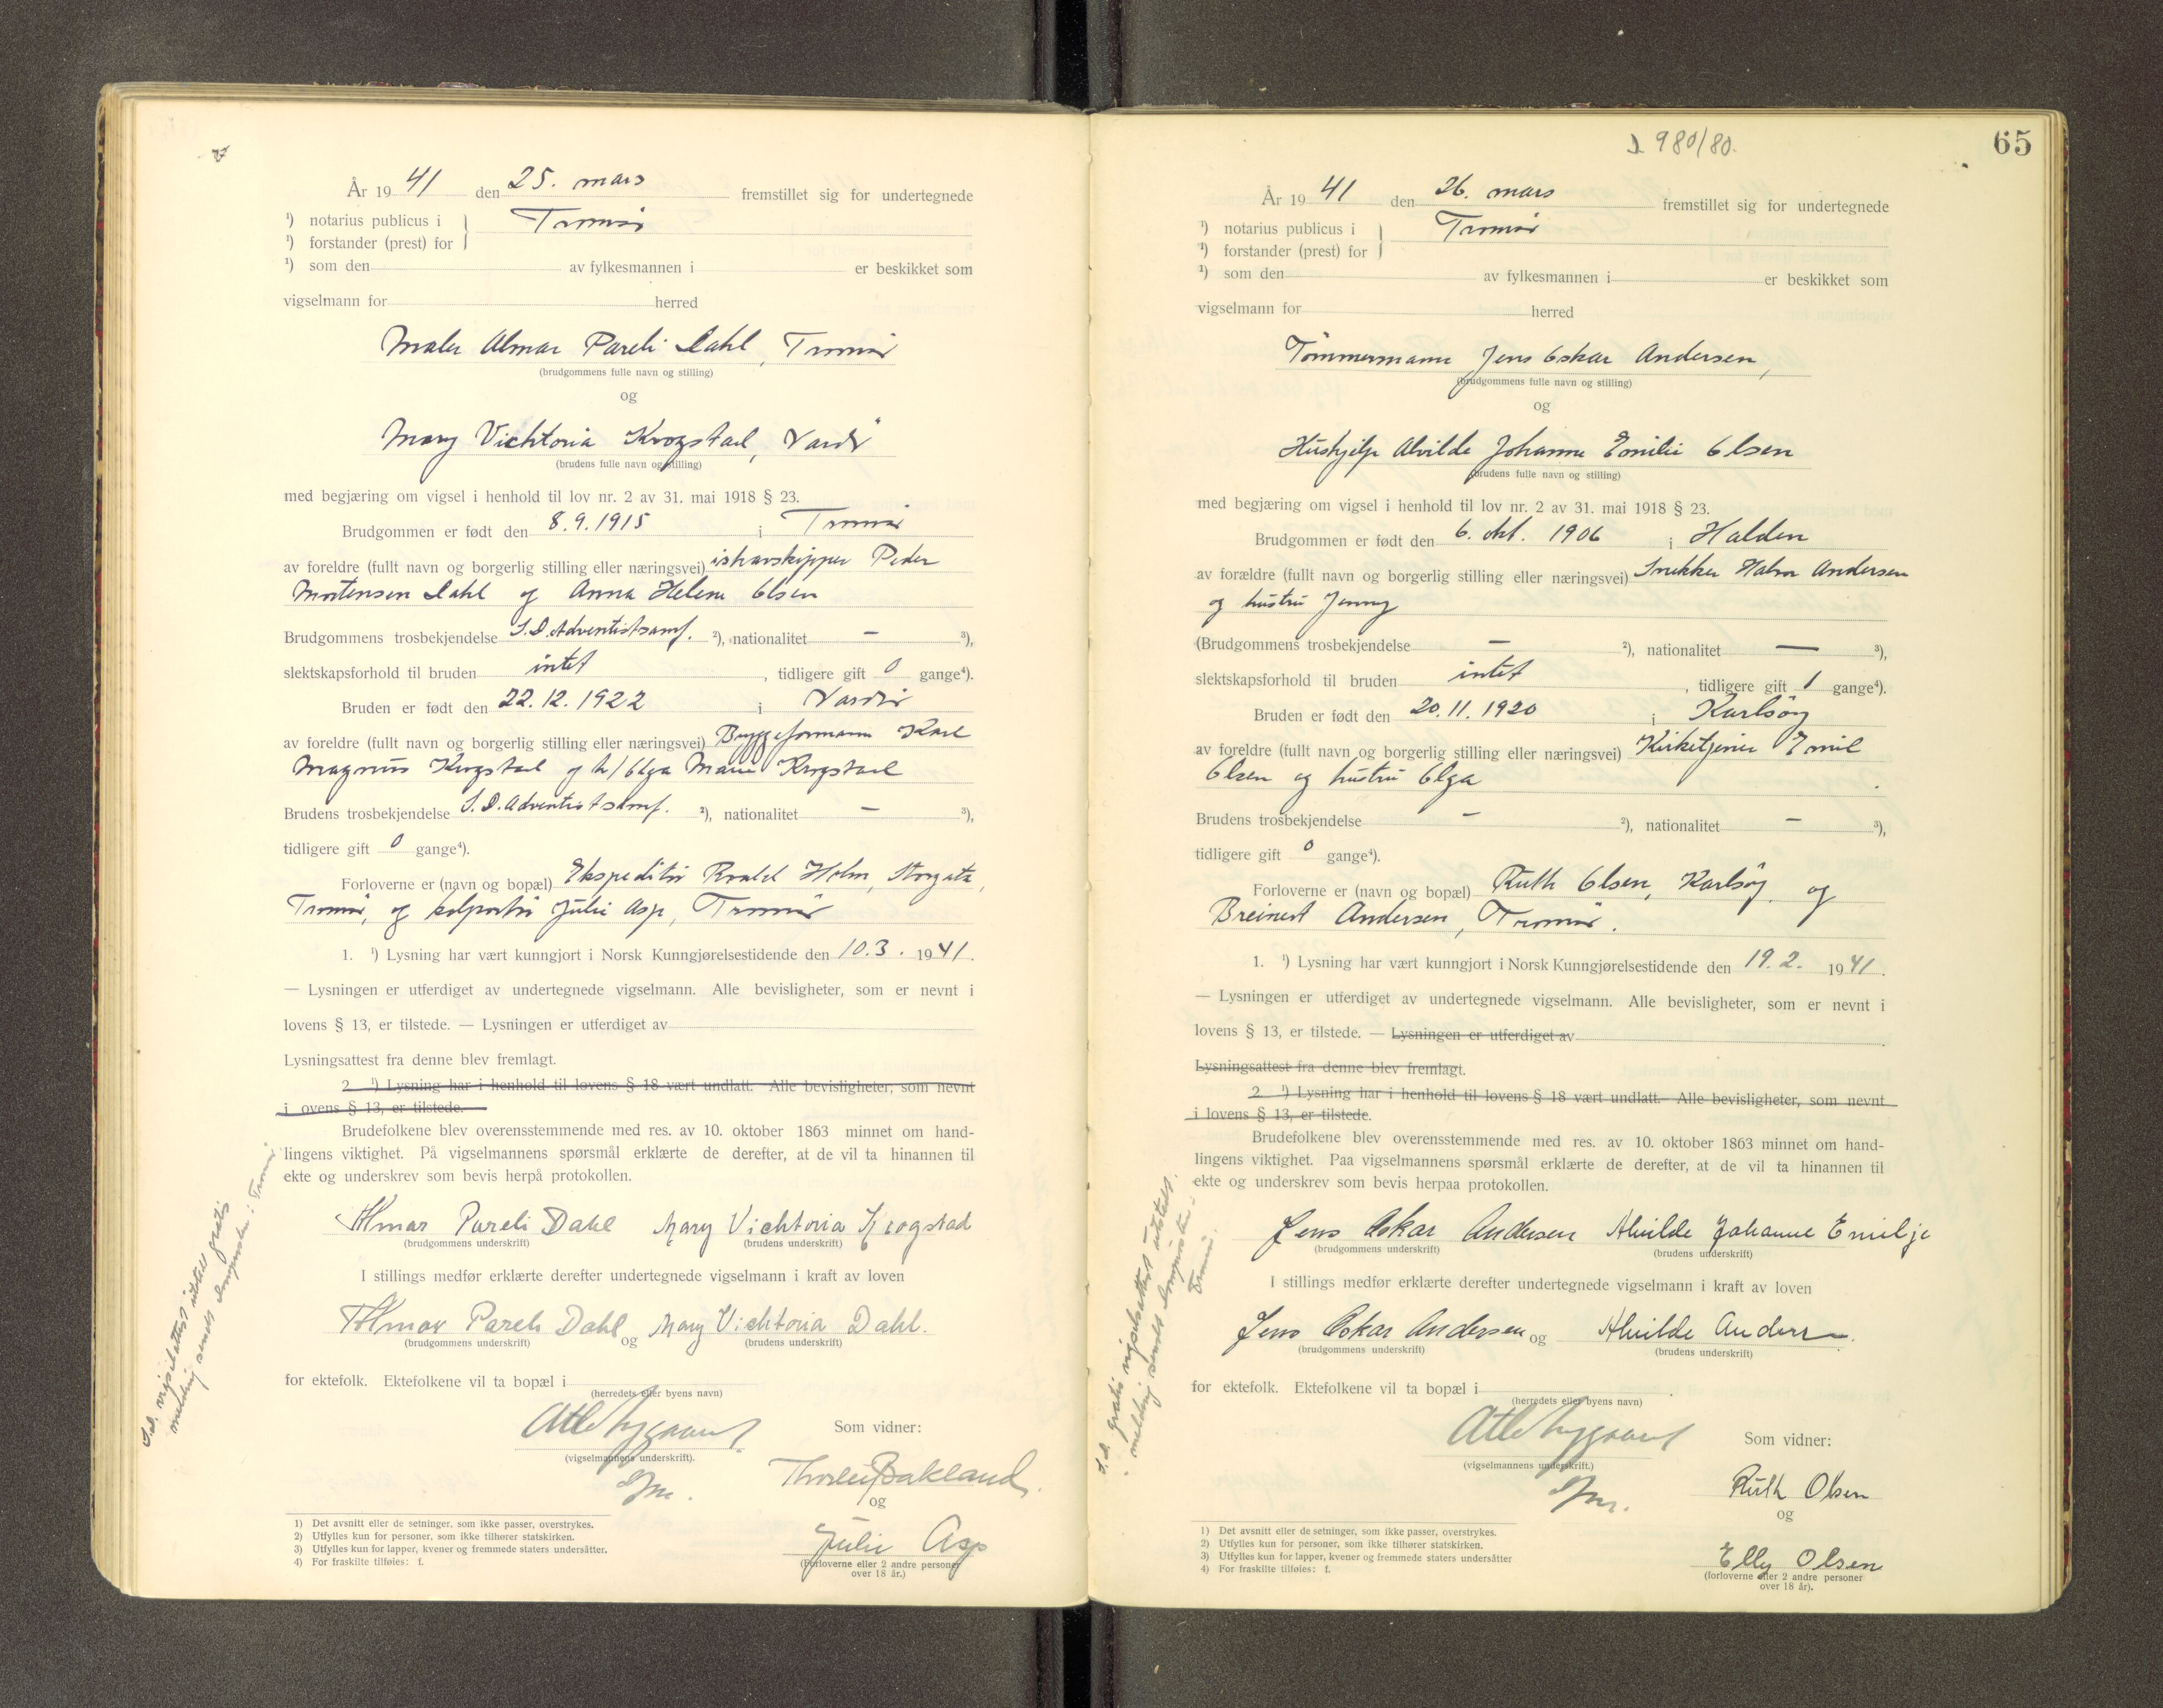 År 1941 den 25. mars fremstillet sig for undertegnede
¹) notarius publicus i
Tromsö
¹) forstander (prest) for
¹) som den av fylkesmannen i er beskikket som
vigselmann for herred
Maler Almar Pareli Dahl, Tromsö
(brudgommens fulle navn og stilling)
og
Mary Vichtoria Krogstad, Vardö
(brudens fulle navn og stilling)
med begjæring om vigsel i henhold til lov nr. 2 av 31. mai 1918 § 23.
Brudgommen er født den 8.9.1915 i Tromsö
av foreldre (fullt navn og borgerlig stilling eller næringsvei) ishavskipper Peder
Mortensen Dahl og Anna Helene Olsen
Brudgommens trosbekjendelse S.D. Adventistsamf. ²), nationalitet — ³),
slektskapsforhold til bruden intet, tidligere gift 0 gange⁴).
Bruden er født den 22.12.1922 i Vardö
av foreldre (fullt navn og borgerlig stilling eller næringsvei) Byggeformann Karl
Magnus Krogstad og h/ Olga Marie Krogstad
Brudens trosbekjendelse S.D. Adventistsamf. ²), nationalitet — ³),
tidligere gift 0 gange⁴).
Forloverne er (navn og bopæl) Ekspeditör Roald Holm, Storgata,
Tromsö, og kolportör Julie Asp, Tromsö
1. ¹) Lysning har vært kunngjort i Norsk Kunngjørelsestidende den 10.3. 1941.
— Lysningen er utferdiget av undertegnede vigselmann. Alle bevisligheter, som er nevnt i
lovens § 13, er tilstede. — Lysningen er utferdiget av
Lysningsattest fra denne blev fremlagt.
2 ¹) Lysning har i henhold til lovens § 18 vært undlatt. Alle bevisligheter, som nevnt
i ovens § 13, er tilstede.
Brudefolkene blev overensstemmende med res. av 10. oktober 1863 minnet om hand-
lingens viktighet. På vigselmannens spørsmål erklærte de derefter, at de vil ta hinannen til
ekte og underskrev som bevis herpå protokollen.
Almar Pareli Dahl Mary Vichtoria Krogstad
(brudgommens underskrift) (brudens underskrift)
I stillings medfør erklærte derefter undertegnede vigselmann i kraft av loven
Almar Pareli Dahl og Mary Vichtoria Dahl.
(brudgommens underskrift) (brudens underskrift)
for ektefolk. Ektefolkene vil ta bopæl i
(herredets eller byens navn)
Atle Nygaard
Som vidner:
(vigselmannens underskrift).
Thorleif Bakland
og
Julie Asp
(Forloverne eller 2 andre personer
over 18 år.)
1) Det avsnitt eller de setninger, som ikke passer, overstrykes.
2) Utfylles kun for personer, som ikke tilhører statskirken.
3) Utfylles kun for lapper, kvener og fremmede staters undersåtter.
4) For fraskilte tilføies: f.
S.d. vigselattest utstedt gratis
melding sendt sognepresten i Tromsö
980/80.
65
År 1941 den 26. mars fremstillet sig for undertegnede
¹) notarius publicus i
Tromsö
¹) forstander (prest) for
¹) som den av fylkesmannen i er beskikket som
vigselmann for herred
Tömmermann Jens Oskar Andersen,
(brudgommens fulle navn og stilling)
og
Hushjelp Alvilde Johanne Emilie Olsen
(brudens fulle navn og stilling)
med begjæring om vigsel i henhold til lov nr. 2 av 31. mai 1918 § 23.
Brudgommen er født den 6. okt. 1906 i Halden
av forældre (fullt navn og borgerlig stilling eller næringsvei) Snekker Halvor Andersen
og hustru Jenny
(Brudgommens trosbekjendelse — ²), nationalitet — ³),
slektskapsforhold til bruden intet, tidligere gift 1 gange⁴).
Bruden er født den 20.11.1920 i Karlsöy
av foreldre (fullt navn og borgerlig stilling eller næringsvei) Kirketjener Emil
Olsen og hustru Olga
Brudens trosbekjendelse — ²), nationalitet — ³),
tidligere gift 0 gange⁴).
Forloverne er (navn og bopæl) Ruth Olsen, Karlsöy, og
Breinert Andersen, Tromsö.
1. ¹) Lysning har vært kunngjort i Norsk Kunngjørelsestidende den 19.2. 1941.
— Lysningen er utferdiget av undertegnede vigselmann. Alle bevisligheter, som er nevnt i
lovens § 13, er tilstede. — Lysningen er utferdiget av
Lysningsattest fra denne blev fremlagt.
2 ¹) Lysning har i henhold til lovens § 18 vært undlatt.— Alle bevisligheter, som nevnt
i lovens § 13, er tilstede.
Brudefolkene blev overensstemmende med res. av 10. oktober 1863 minnet om hand-
lingens viktighet. Paa vigselmannens spørsmål erklærte de derefter, at de vil ta hinannen til
ekte og underskrev som bevis herpaa protokollen.
Jens Oskar Andersen Alvilde Johanne Emilje
(brudgommens underskrift) (brudens underskrift)
I stillings medfør erklærte derefter undertegnede vigselmann i kraft av loven
Jens Oskar Andersen og Alvilde Andersen.
(brudgommens underskrift) (brudens underskrift)
for ektefolk. Ektefolkene vil ta bopæl i
(herredets eller byens navn)
Atle Nygaard
Som vidner:
(vigselmannens underskrift.)
Ruth Olsen
og
Elly Olsen
(forloverne eller 2 andre personer
over 18 år).
1) Det avsnitt eller de setninger, som ikke passer, overstrykes.
2) Utfylles kun for personer, som ikke tilhører statskirken.
3) Utfylles kun for lapper, kvener og fremmede staters undersåtter
4) For fraskilte tilføies: f.
S.d. gratis vigselsattest utstedt.
melding sendt sognepresten i
Tromsö.